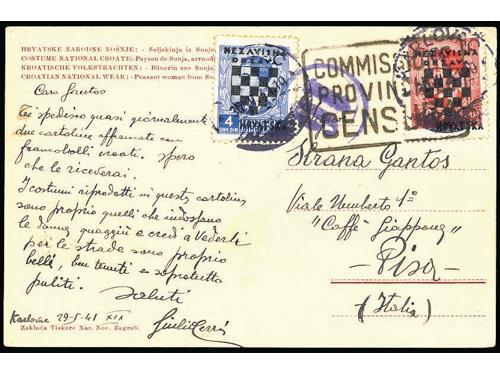 HRVATSKE NARODNE NOŠNJE: - Seljakinja iz Sunje,
COSTUME NATIONAL CROATE: - Paysan de Sunja, arrondi
KROATISCHE VOLKSTRACHTEN: - Bäuerin aus Sunja,
CROATIAN NATIONAL WEAR: - Peasant woman from Su
NEZAVISNA
DRŽAVA
4
HRVATSKA
COMMISS
PROVIN
CENS
NEZAVISNA
DRŽAVA
HRVATSKA
Caro Gantos
Ti spedisco quasi giornalmente
due cartoline affrancate con
francobolli croati. Spero
che le riceverai.
I costumi riprodotti in questa cartolina
sono proprio quelli che indossano
le donne quaggiù e credi a vederle
per le strade sono proprio
belli, ben tenuti e soprattutto
puliti. Saluti
Karlovac 29-5-41 XIX
Zaklada Tiskare Nar. Nov. Zagreb.
Gantos
Viale Umberto 1º
"Caffè Giappone"
- Pisa -
(Italia)